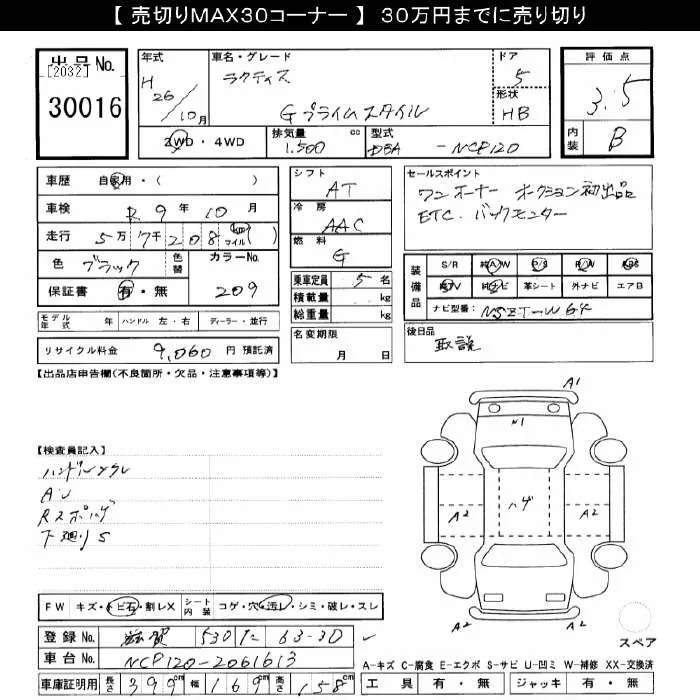 【 売切りMAX30コーナー 】 30万円までに売り切り
出品No. [2032] 30016
年式 H 26/10月
車名・グレード ラクティス G プライムスタイル
ドア 5
形状 HB
評価点 3.5
内装 B
2WD・4WD 排気量 1.500 cc 型式 DBA - NCP120
車歴 自家用・( )
車検 R 9年 10月
走行 5万 7千 208 (km マイル)( )
色 ブラック 色替 カラーNo. 209
保証書 有・無
モデル年式 年 ハンドル 左・右 ディーラー・並行
リサイクル料金 9,060 円 預託済
シフト AT
冷房 AAC
燃料 G
乗車定員 5 名
積載量 kg
総重量 kg
名変期限 月 日
セールスポイント
ワンオーナー オークション初出品
ETC. バックモニター
装備品 S/R 純A/W P/S P/W ABS
純TV 純ナビ 革シート 外ナビ エアB
ナビ型番 NSZT-W64
後日品 取説
【出品店申告欄(不良箇所・欠品・注意事項等)】
【検査員記入】
ハンドルスレ
AU
Rスポハゲ
下廻りS
A1
W1
ハゲ
A2
A2
A2
A2
スペア
FW キズ・トビ石・割レX シート内装 コゲ・穴・汚レ・シミ・破レ・スレ
登録No. 滋賀 530 た 63-30
車台No. NCP120-2061613
車庫証明用 長さ 399cm 幅 169cm 高さ 158cm
A-キズ C-腐食 E-エクボ S-サビ U-凹ミ W-補修 XX-交換済
工具 有・無 ジャッキ 有・無